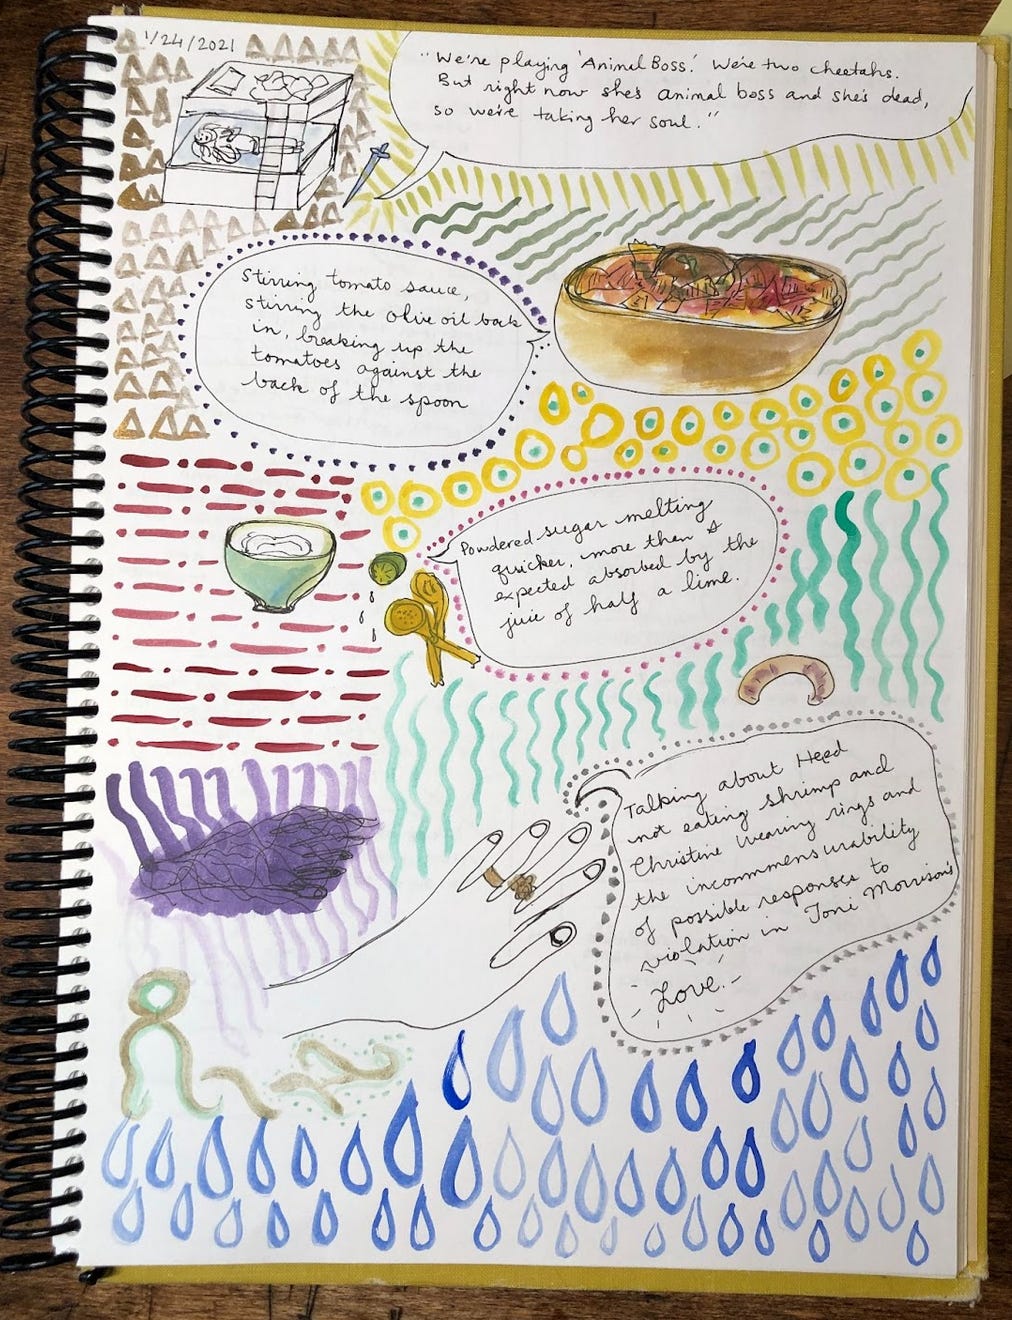 1/24/2021
"We're playing 'Animal Boss.' We're two cheetahs.
But right now she's animal boss and she's dead,
so we're taking her soul."
Stirring tomato sauce,
stirring the olive oil back
in, breaking up the
tomatoes against the
back of the spoon
Powdered sugar melting
quicker, more than I
expected absorbed by the
juice of half a lime.
Talking about Heed
not eating shrimp and
Christine wearing rings and
the incommensurability
of possible responses to
violation in Toni Morrison's
Love.